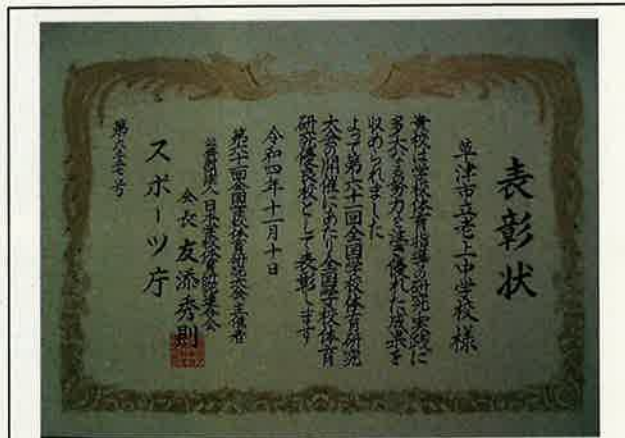 表彰状
草津市立老上中学校様
貴校は学校体育指導の研究実践に
多大なる努力を重ね優れた成果を
収められました
よって第六十一回全国学校体育研究
大会の開催にあたり全国学校体育
研究優良校として表彰します
令和四年十一月十日
第六十一回全国学校体育研究大会主催者
公益財団法人日本学校体育研究連合会
会長 友添秀則
スポーツ庁